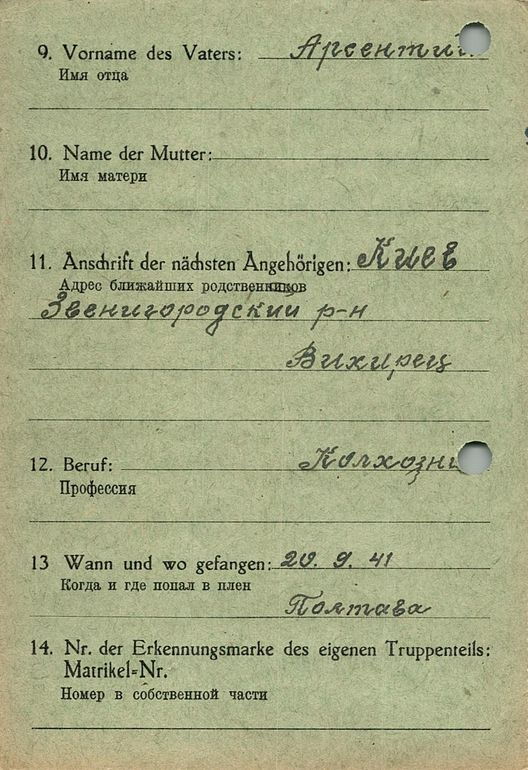 9. Vorname des Vaters: Арсентий
Имя отца
10. Name der Mutter:
Имя матери
11. Anschrift der nächsten Angehörigen: Киев
Адрес ближайших родственников
Звенигородский р-н
Вихирец
12. Beruf:
Профессия
13 Wann und wo gefangen: 20. 9. 41
Когда и где попал в плен
Полтава
14. Nr. der Erkennungsmarke des eigenen Truppenteils:
Matrikel=Nr.
Номер в собственной части